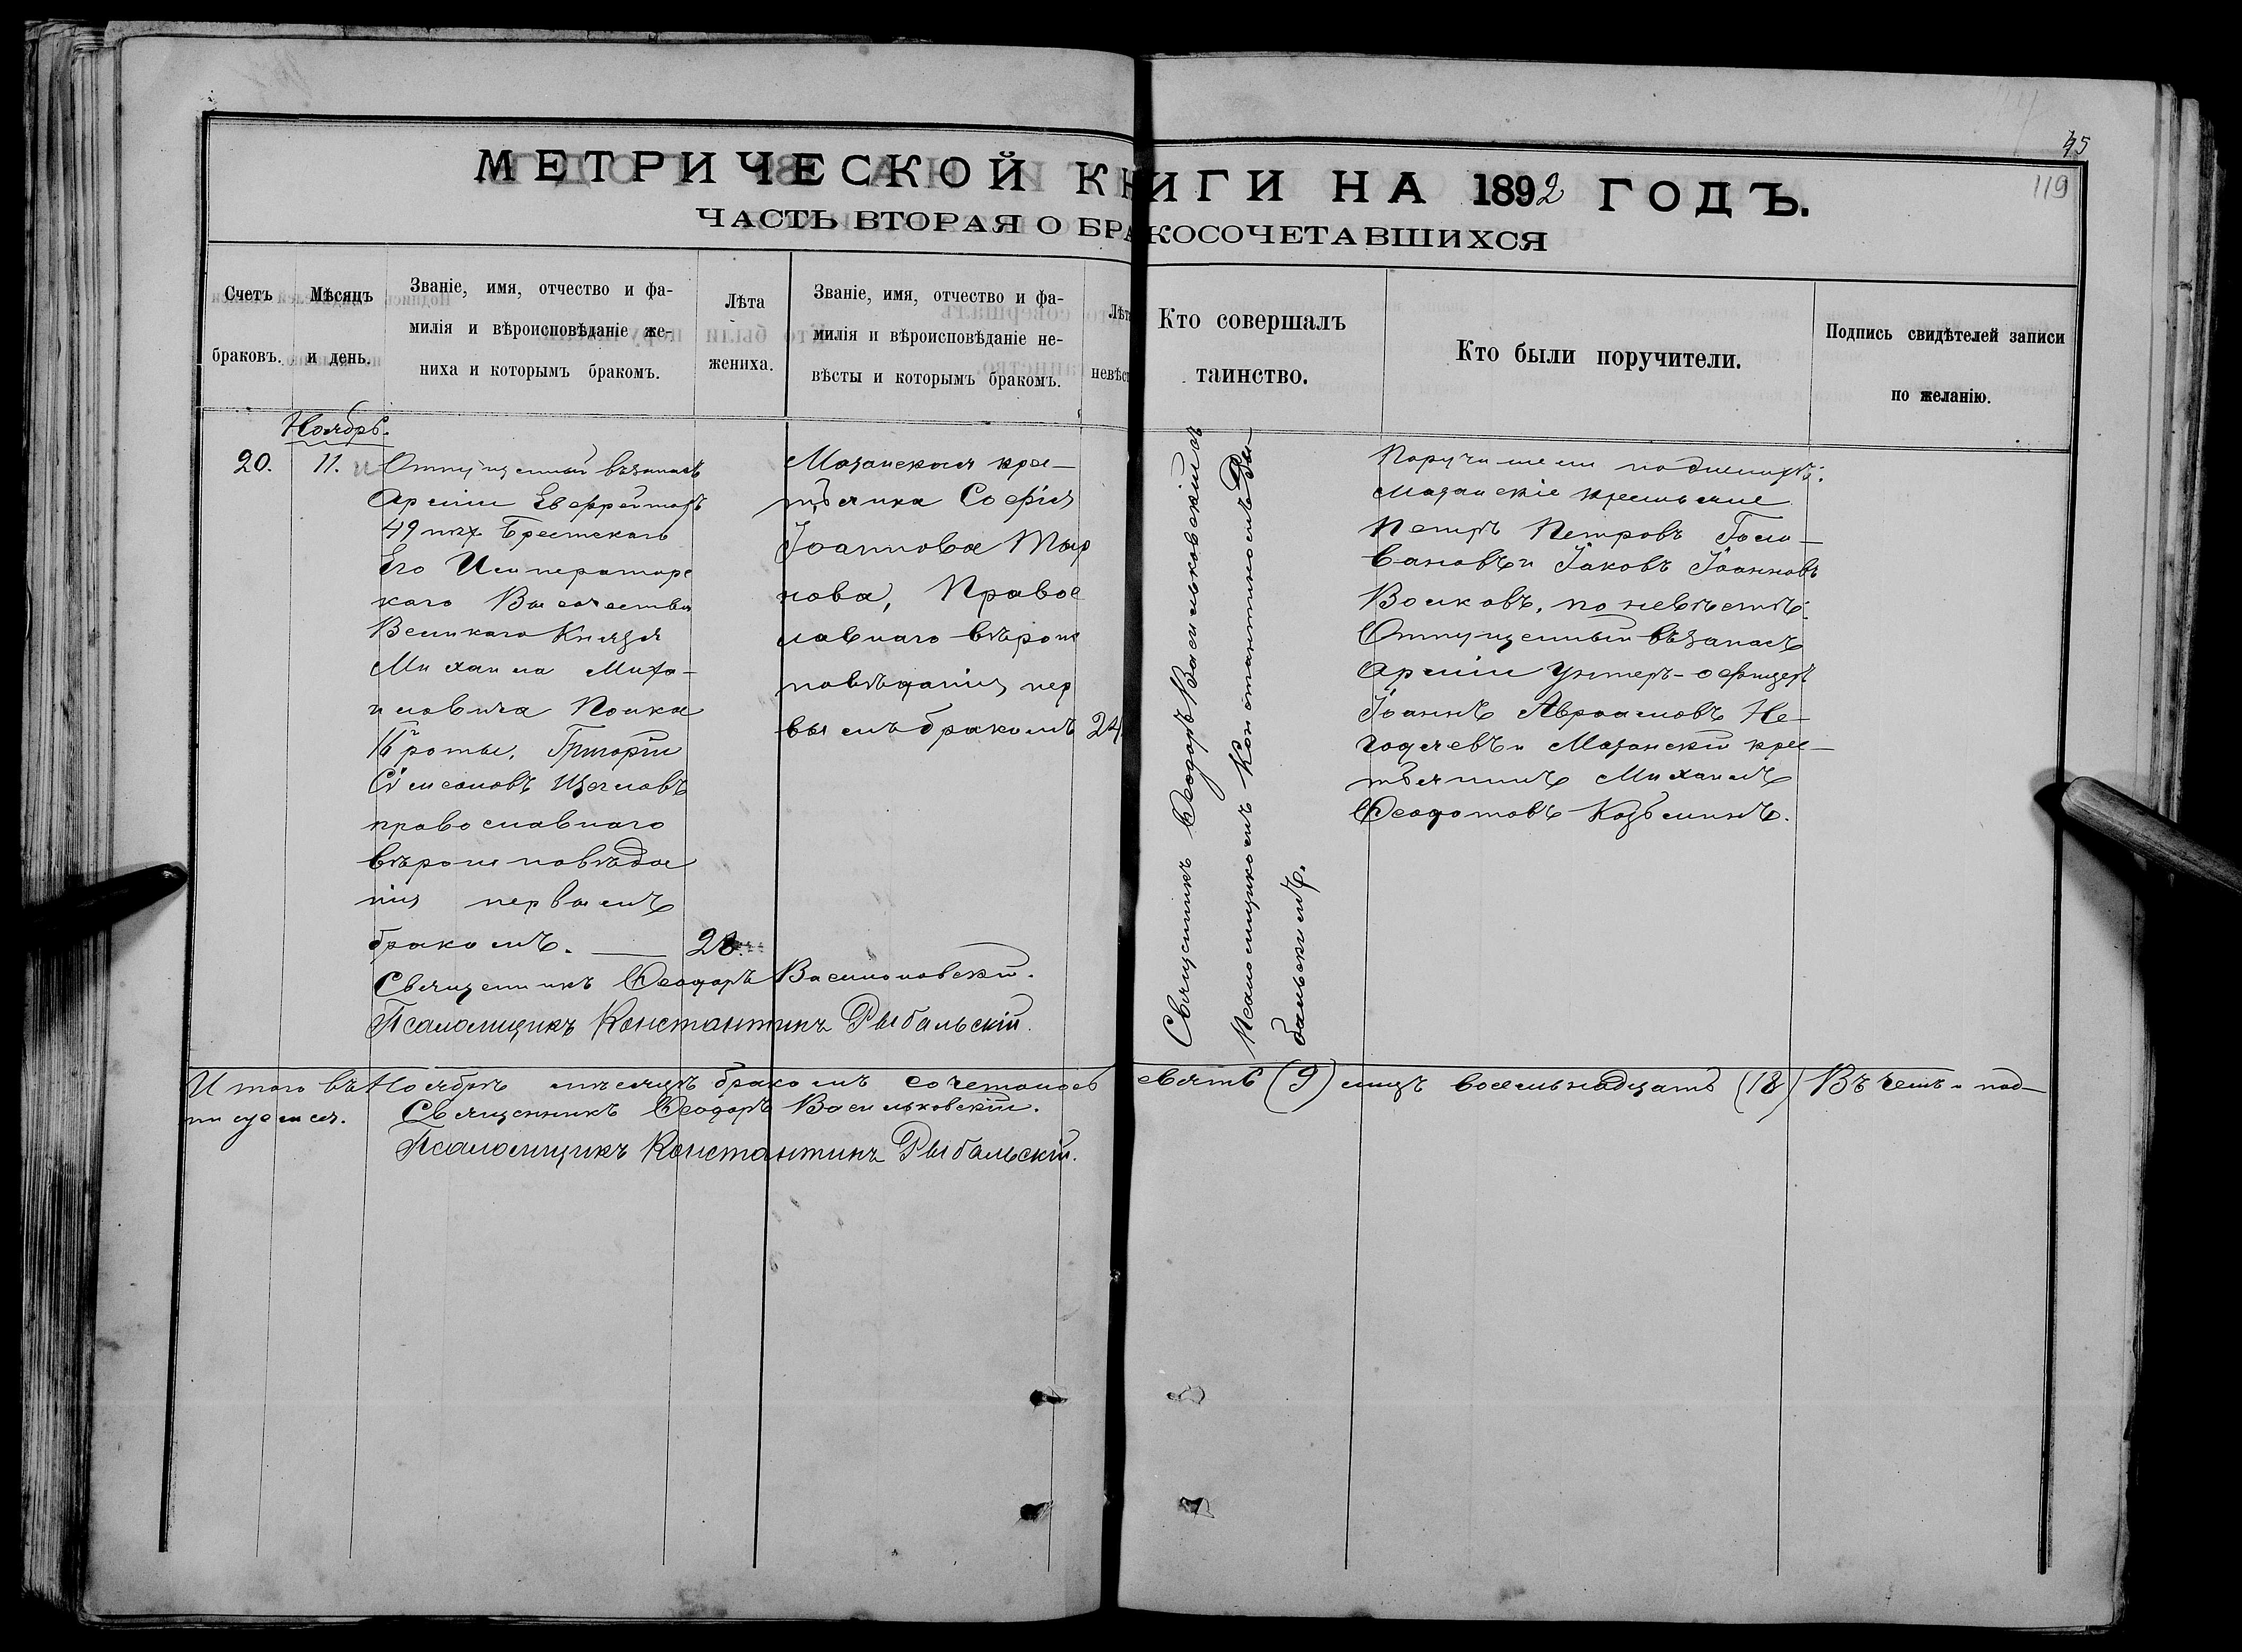 45
119
МЕТРИЧЕСКОЙ КНИГИ НА 1892 ГОДЪ.
ЧАСТЬ ВТОРАЯ О БРАКОСОЧЕТАВШИХСЯ
Счетъ браковъ.
Мѣсяцъ и день.
Званіе, имя, отчество и фа-
милія и вѣроисповѣданіе же-
ниха и которымъ бракомъ.
Лѣта
жениха.
Званіе, имя, отчество и фа-
милія и вѣроисповѣданіе не-
вѣсты и которымъ бракомъ.
Лѣта
невѣс
Кто совершалъ
таинство.
Кто были поручители.
Подпись свидѣтелей записи
по желанію.
Ноябрь.
20. 11.
Отпущенный въ запасъ
Арміи Ефрейторъ
49 пѣх Брестскаго
Его Император
скаго Высочества
Великаго Князя
Михаила Миха-
иловича Полка
16й роты, Григорій
Симеоновъ
православнаго
вѣроисповѣда
нія первымъ
бракомъ. — 28.
Мазанская крес-
тьянка Софія
Іоаннова
нова, Правос
лавнаго вѣроис
повѣданія, пер
вымъ бракомъ 24
Священникъ Ѳеодоръ Васильковскій съ
Псаломщикомъ Константиномъ Ры-
бальскимъ.
Поручители по женихѣ:
Мазанскіе крестьяне
Петръ Петровъ Голо-
вановъ и Іаковъ Іоанновъ
Волковъ, по невѣстѣ:
Отпущенный въ запасъ
Арміи Унтеръ-офицеръ
Іоаннъ Авраамовъ Не-
годяевъ и Мазанскій крес-
тьянинъ Михаилъ
Ѳеодотовъ Козьминъ.
Священникъ Ѳеодоръ Васильковскій.
Псаломщикъ Константинъ Рыбальскій.
Итого въ Ноябрѣ мѣсяцѣ бракомъ сочеталось девять (9) лицъ восемьнадцать (18) Въ чемъ и под-
писуемся. Священникъ Ѳеодоръ Васильковскій.
Псаломщикъ Константинъ Рыбальскій.